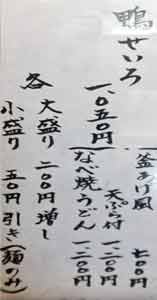 鴨せいろ
一、〇五〇円
釜あげ風 七〇〇円
天ぷら付 一、二〇〇円
なべ焼うどん 一、二〇〇円
各 大盛り 二〇〇円増し
小盛り 五〇円引き(麺のみ)